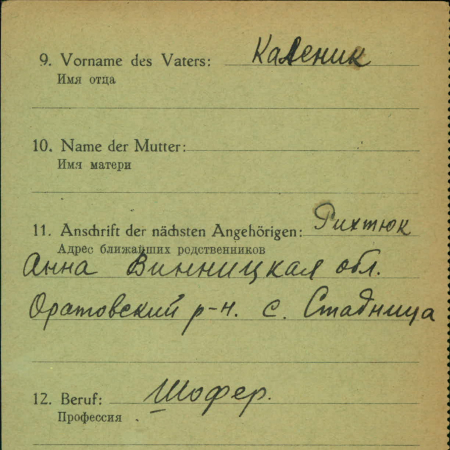 9. Vorname des Vaters: Каленик
Имя отца
10. Name der Mutter:
Имя матери
11. Anschrift der nächsten Angehörigen: Рихтюк
Адрес ближайших родственников
Анна Винницкая обл.
Оратовский р-н. с. Стадница
12. Beruf: Шофер.
Профессия